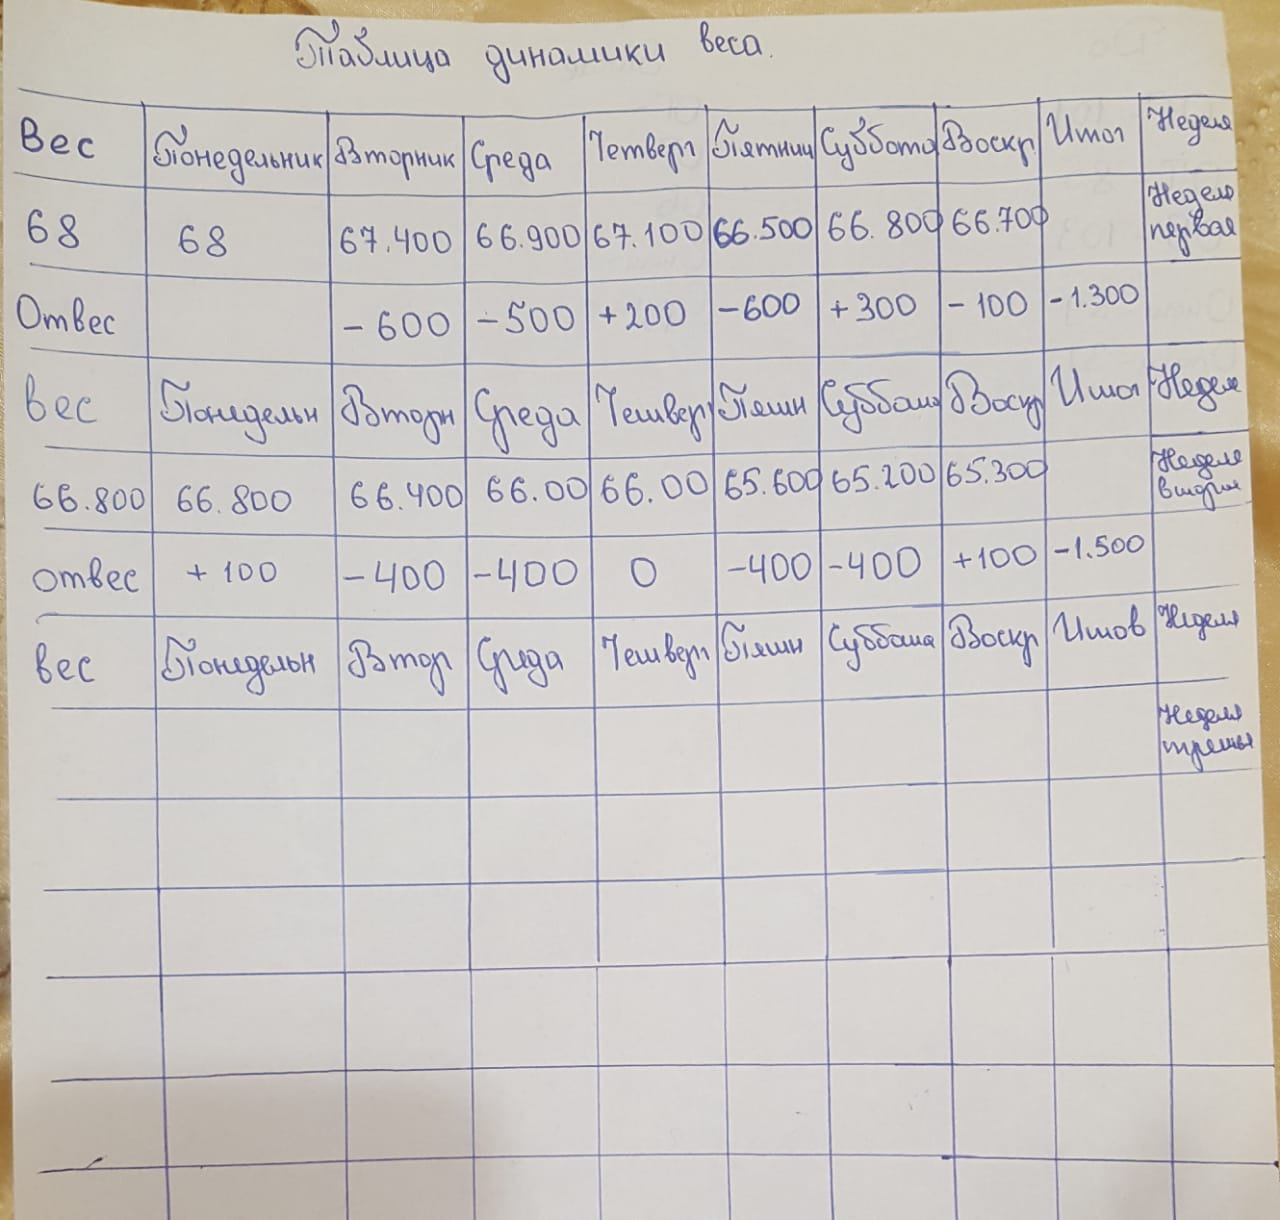 Таблица динамики веса.
Вес Понедельник Вторник Среда Четверг Пятниц Суббота Воскр Итог Неделя
68 68 67.400 66.900 67.100 66.500 66.800 66.700 Неделя первая
Отвес -600 -500 +200 -600 +300 -100 -1.300
Вес Понедельн Вторн Среда Четверг Пятн Суббота Воскр Итог Неделя
66.800 66.800 66.400 66.00 66.00 65.600 65.200 65.300 Неделя вторая
отвес +100 -400 -400 0 -400 -400 +100 -1.500
вес Понедельн Втор Среда Четверг Пятн Суббота Воскр Итов Неделя
Неделя третья